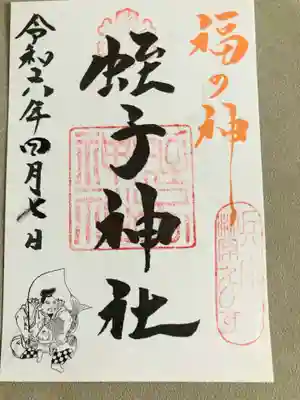 福の神
蛭子神社
令和六年四月七日